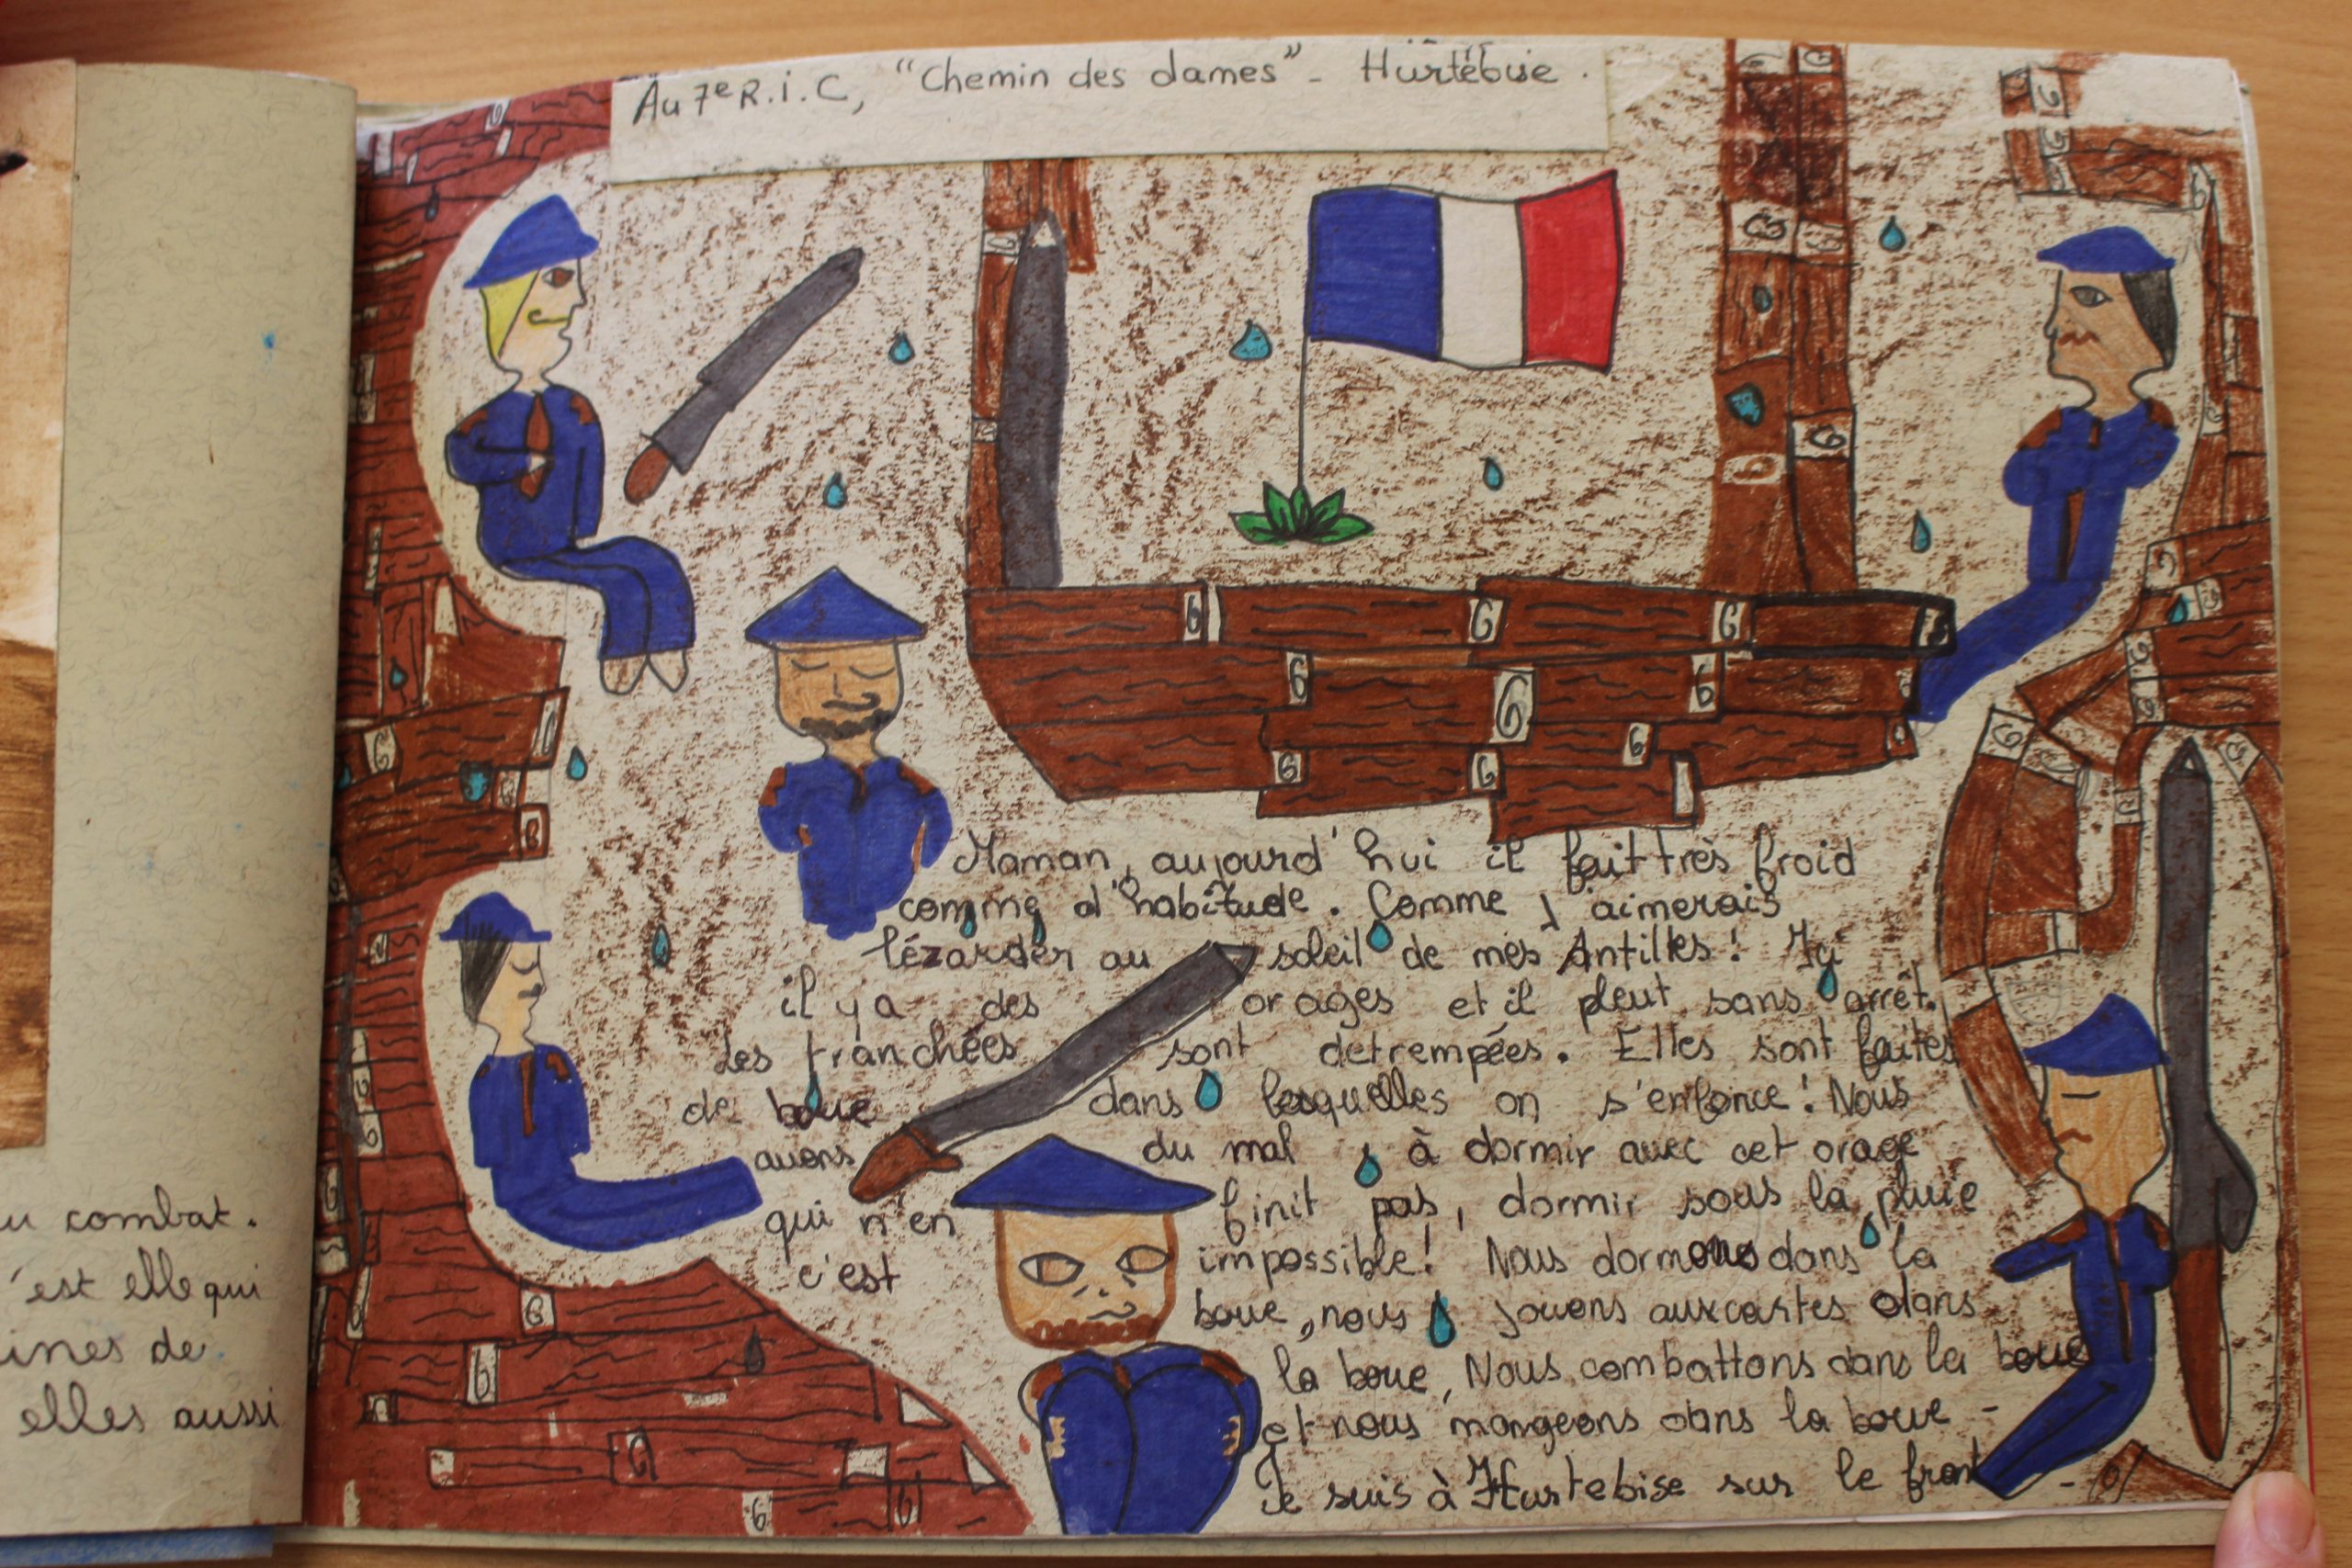 u combat.
'est elle qui
ines de
elles aussi
Au 7e R.I.C, "Chemin des dames" - Hurtebise.
Maman, aujourd'hui il fait très froid
comme d'habitude. Comme j'aimerais
lézarder au soleil de mes Antilles! Ici
il y a des orages et il pleut sans arrêt.
Les tranchées sont détrempées. Elles sont faites
de boue dans lesquelles on s'enfonce! Nous
avons du mal à dormir avec cet orage
qui n'en finit pas, dormir sous la pluie
c'est impossible! Nous dormons dans la
boue, nous jouons aux cartes dans
la boue, Nous combattons dans la boue
et nous mangeons dans la boue -
Je suis à Hurtebise sur le front -